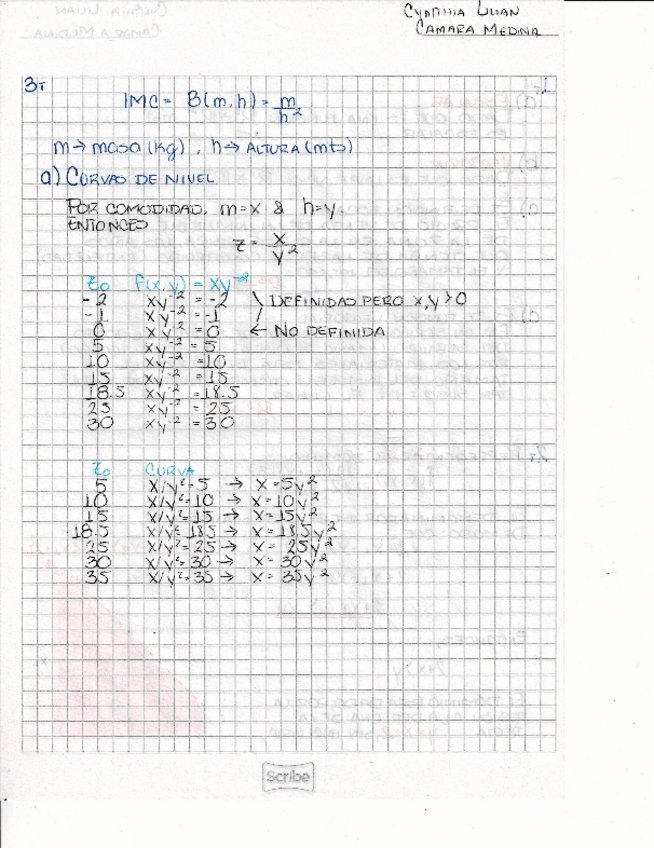 CYNTHIA LILIAN
CAMARA MEDINA
3.-
IMC = B(m,h) = m/h²
m → masa (kg) , h → ALTURA (mts)
a) CURVAS DE NIVEL
POR COMODIDAD, m=x & h=y.
ENTONCES
z = x/y²
z₀ f(x,y) = xy⁻²
-2 xy⁻² = -2 \ DEFINIDAS PERO x,y > 0
-1 xy⁻² = -1 /
0 xy⁻² = 0 ← NO DEFINIDA
5 xy⁻² = 5
10 xy⁻² = 10
15 xy⁻² = 15
18.5 xy⁻² = 18.5
25 xy⁻² = 25
30 xy⁻² = 30
z₀ CURVA
5 x/y² = 5 → x = 5y²
10 x/y² = 10 → x = 10y²
15 x/y² = 15 → x = 15y²
18.5 x/y² = 18.5 → x = 18.5y²
25 x/y² = 25 → x = 25y²
30 x/y² = 30 → x = 30y²
35 x/y² = 35 → x = 35y²
Scribe